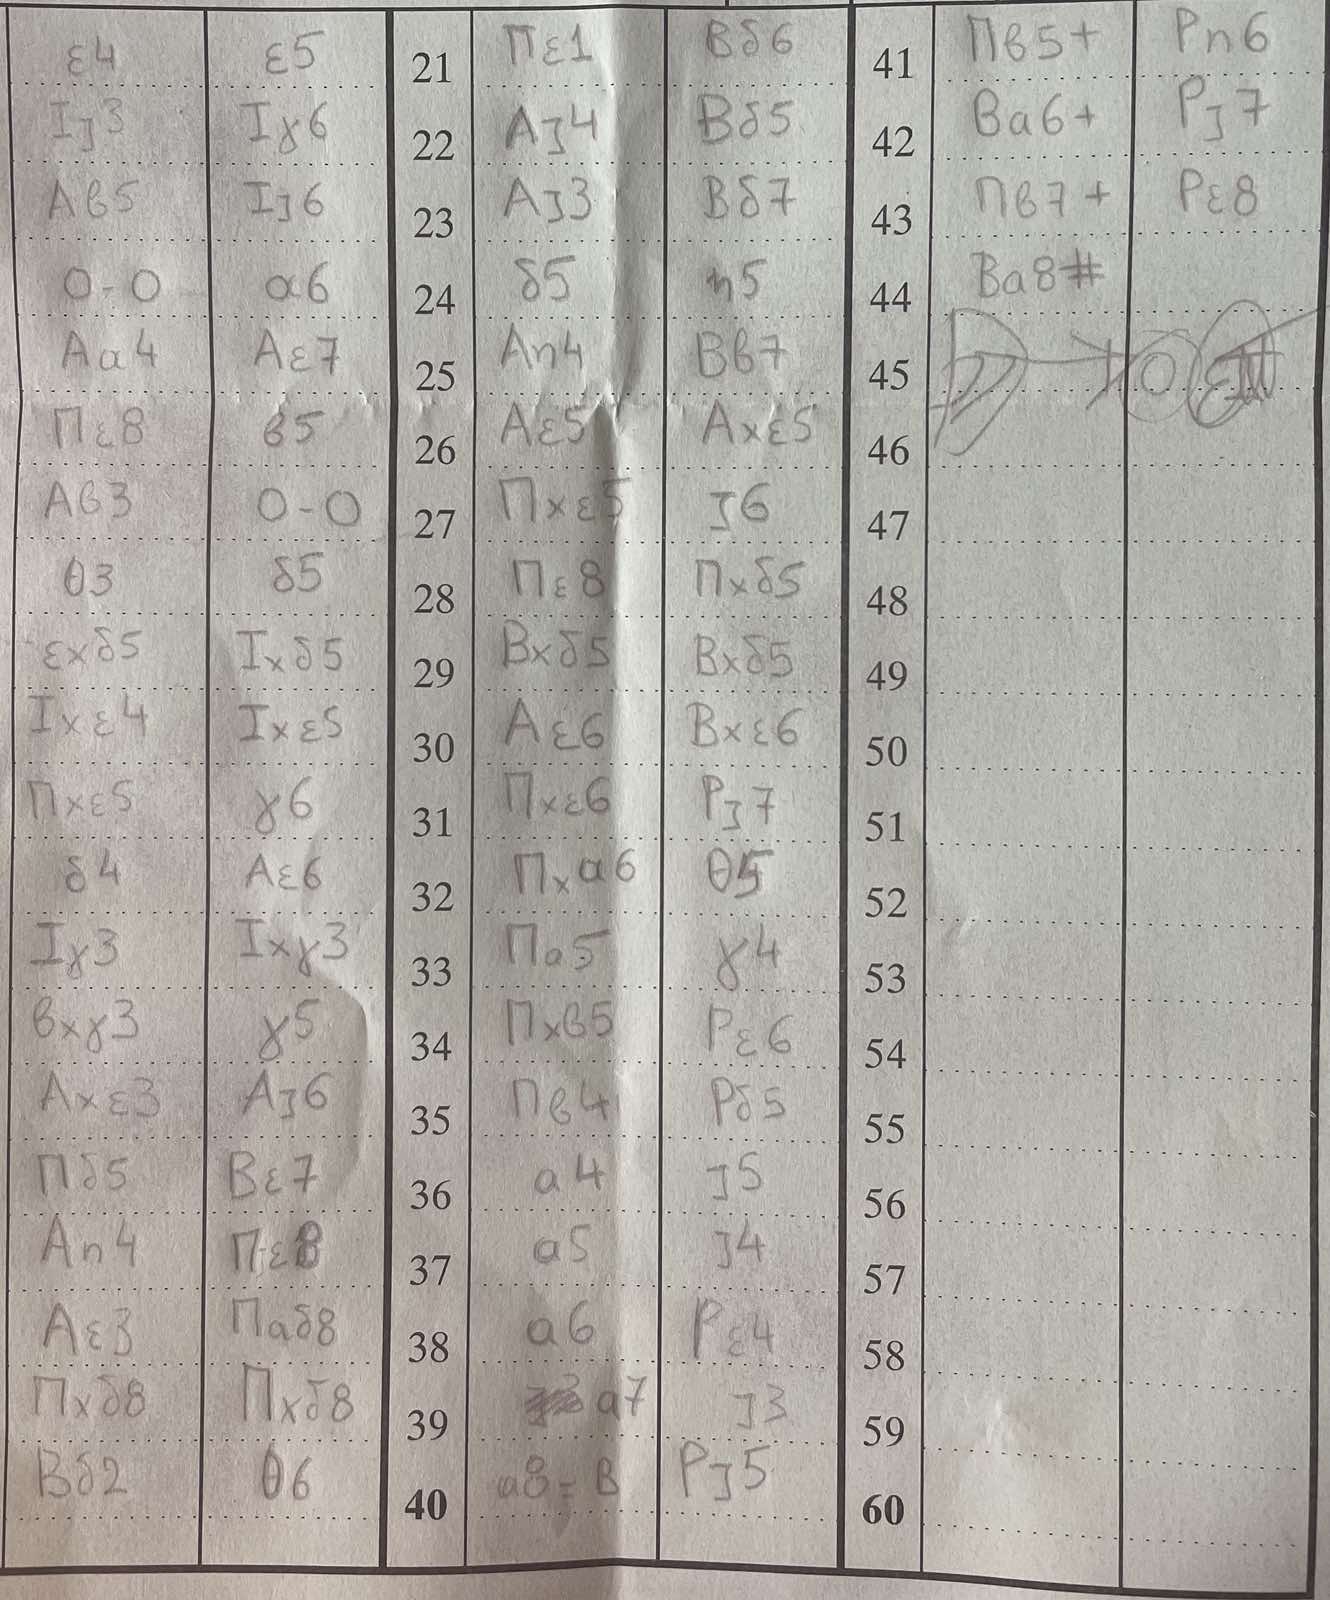 ε4 ε5 21 Πε1 Βδ6 41 Πβ5+ Ρη6
Ιζ3 Ιγ6 22 Αζ4 Βδ5 42 Βα6+ Ρζ7
Αβ5 Ιζ6 23 Αζ3 Βδ7 43 Πβ7+ Ρε8
0-0 α6 24 δ5 η5 44 Βα8#
Αα4 Αε7 25 Αη4 Ββ7 45
Πε8 β5 26 Αε5 Αxε5 46
Αβ3 0-0 27 Πxε5 ζ6 47
θ3 δ5 28 Πε8 Πxδ5 48
εxδ5 Ιxδ5 29 Βxδ5 Βxδ5 49
Ιxε4 Ιxε5 30 Αε6 Βxε6 50
Πxε5 γ6 31 Πxε6 Ρζ7 51
δ4 Αε6 32 Πxα6 θ5 52
Ιγ3 Ιxγ3 33 Πα5 γ4 53
βxγ3 γ5 34 Πxβ5 Ρε6 54
Αxε3 Αζ6 35 Πβ4 Ρδ5 55
Πδ5 Βε7 36 α4 ζ5 56
Αη4 Πε8 37 α5 ζ4 57
Αε3 Παδ8 38 α6 Ρε4 58
Πxδ8 Πxδ8 39 α7 ζ3 59
Βδ2 θ6 40 α8=Β Ρζ5 60